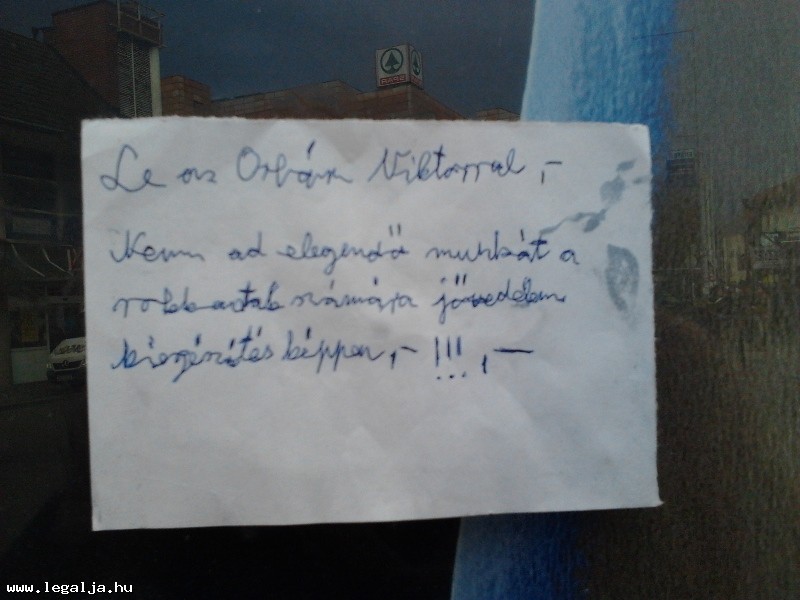 SPAR
Le az Orbán Viktorral ,-
Nem ad elegendő munkát a
rokkantak számára jövedelem
kiegészítés képpen ,- !!! ,-
www.legalja.hu